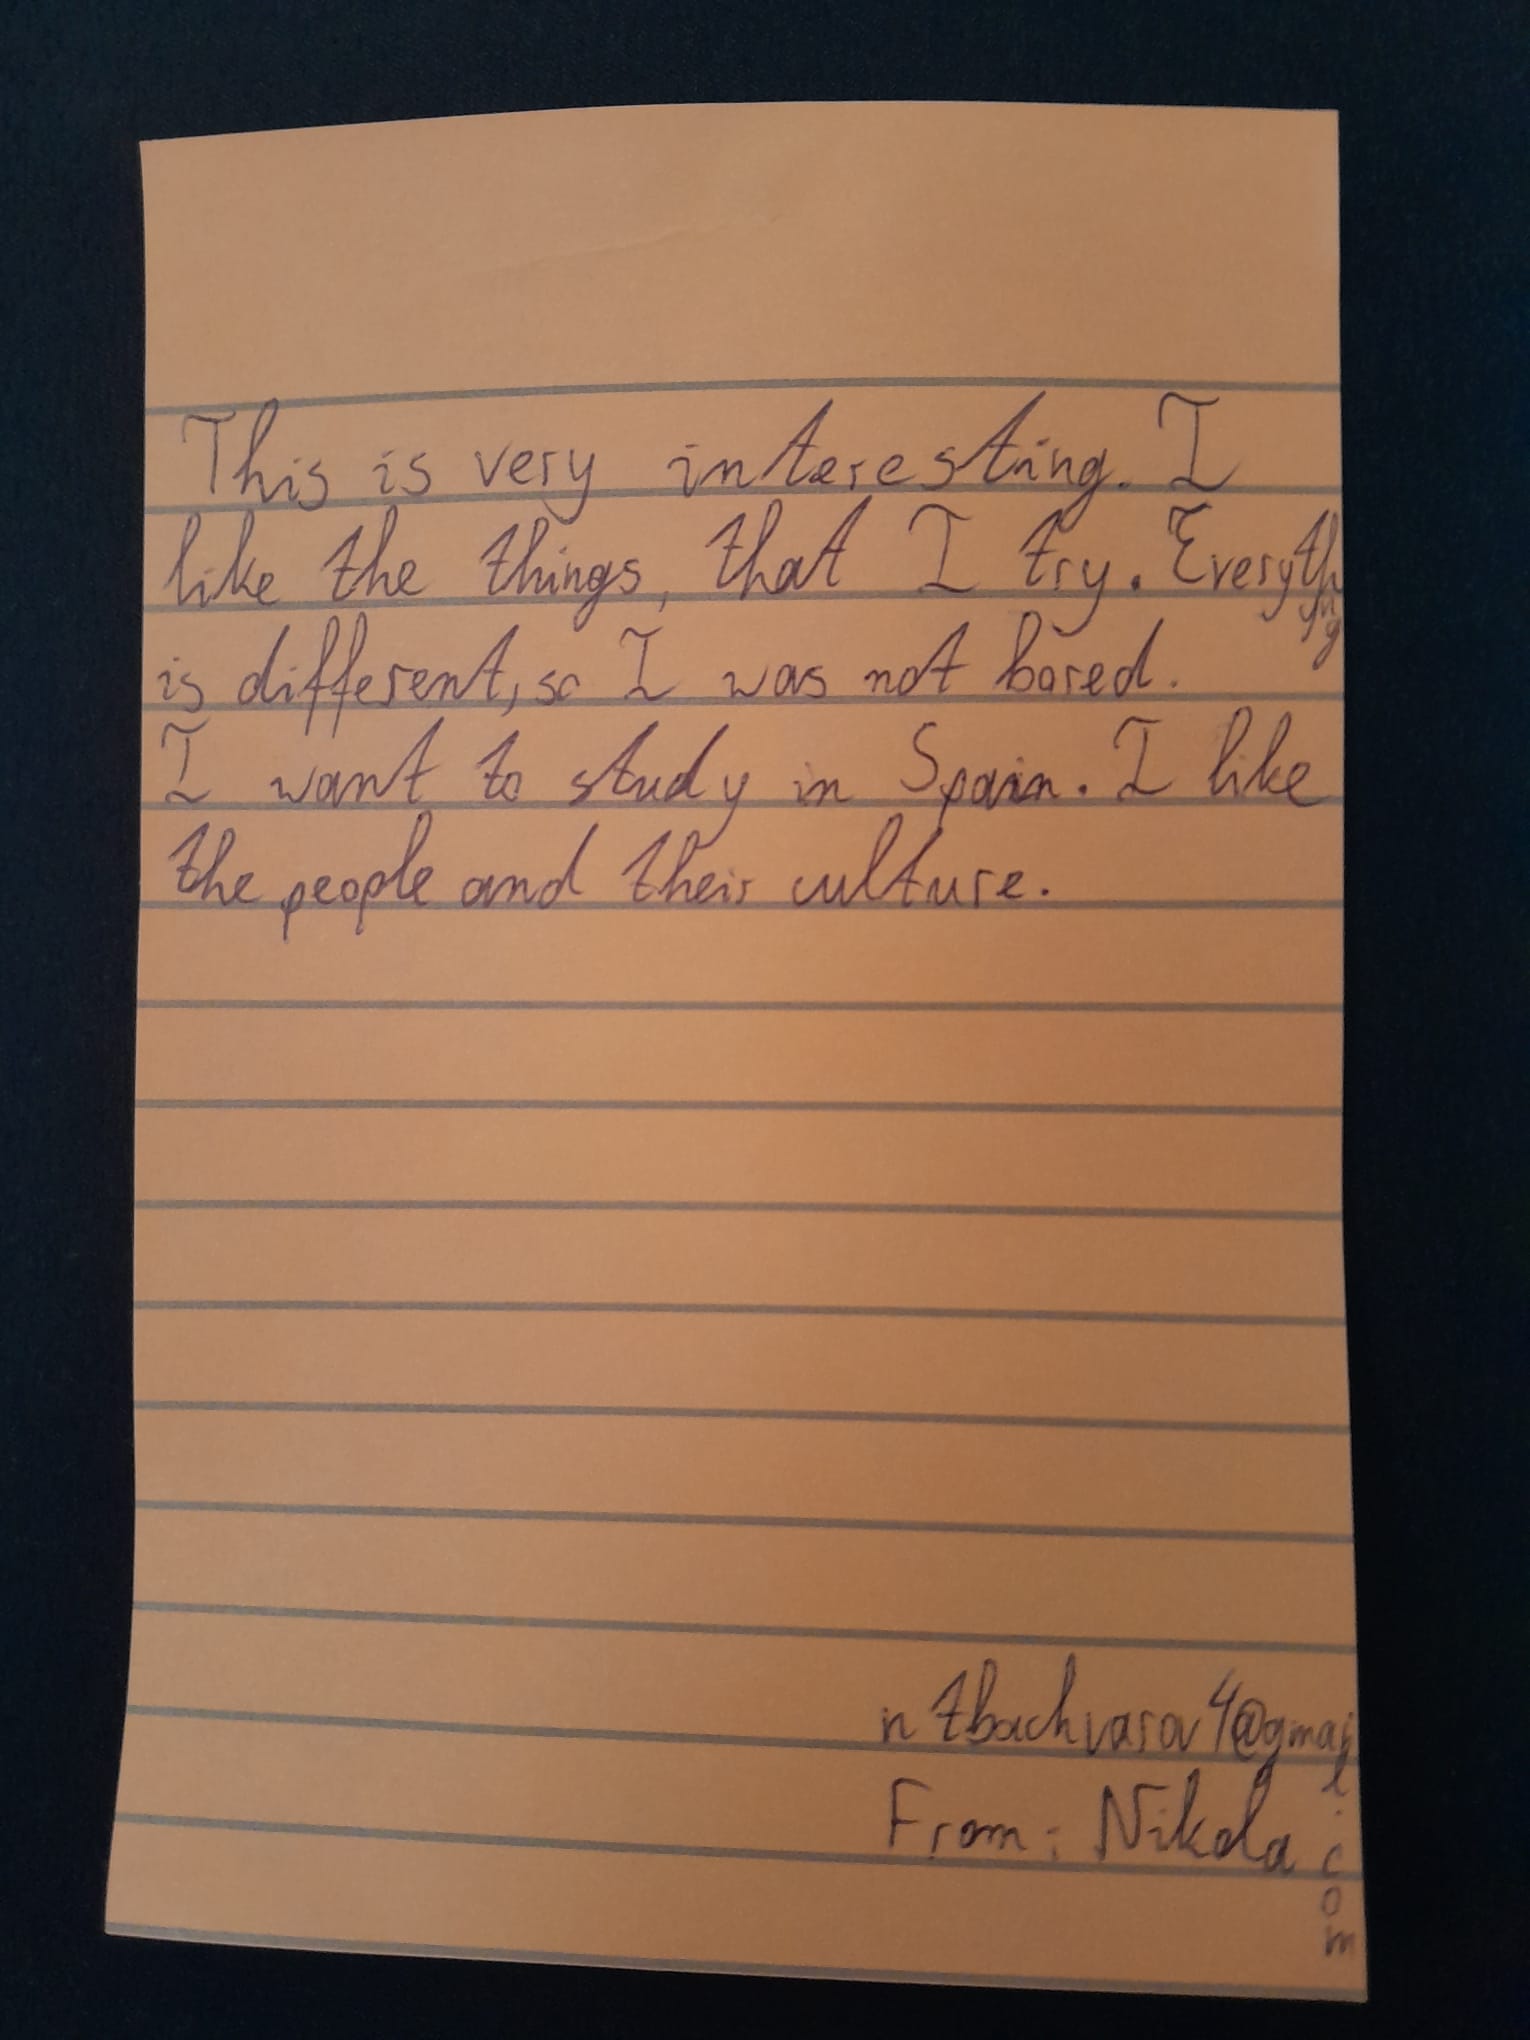 This is very interesting. I
like the things, that I try. Everything
is different, so I was not bored.
I want to study in Spain. I like
the people and their culture.
ntbachvarov4@gmail.com
From: Nikola